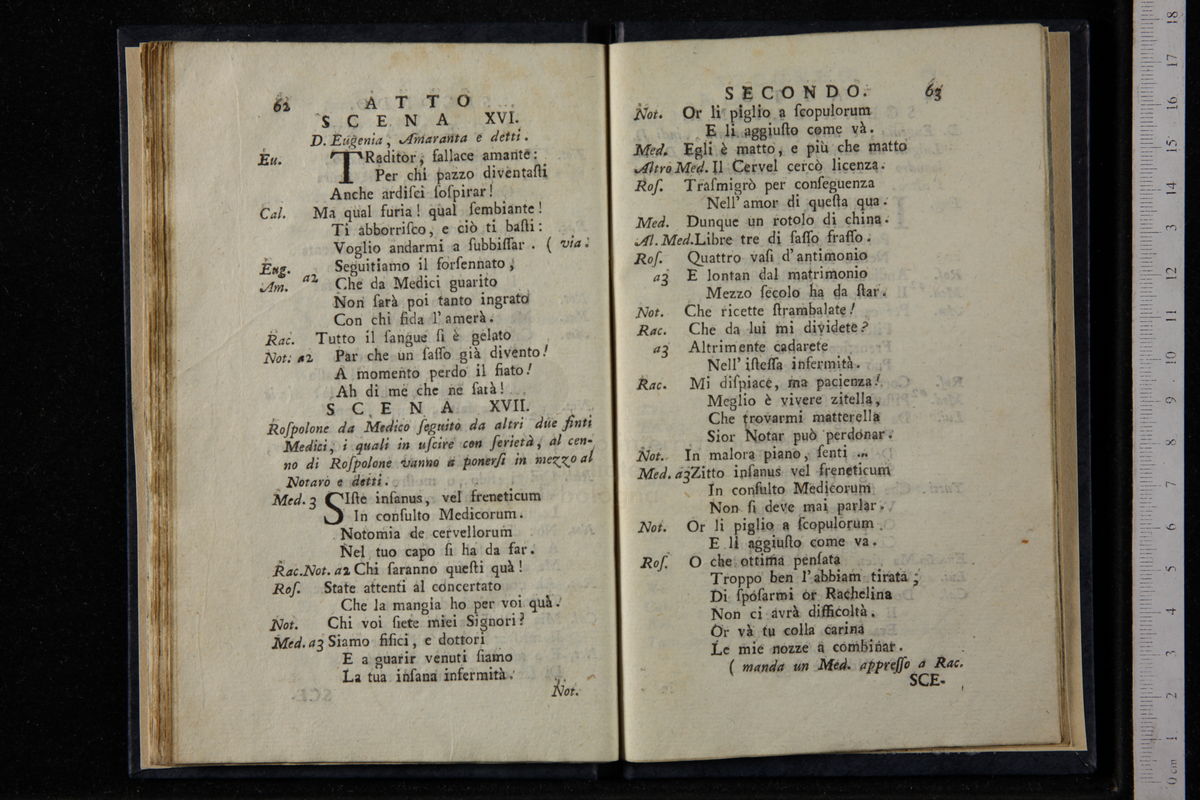 62
ATTO
SCENA XVI.
D. Eugenia, Amaranta e detti.
Eu. TRaditor, fallace amante:
Per chi pazzo diventaſti
Anche ardiſci ſoſpirar!
Cal. Ma qual furia! qual ſembiante!
Ti abborriſco, e ciò ti baſti:
Voglio andarmi a ſubbiſſar. ( via.
Eug. Seguitiamo il forſennato,
Am. a2 Che da Medici guarito
Non ſarà poi tanto ingrato
Con chi fida l'amerà.
Rac. Tutto il ſangue ſi è gelato
Not: a2 Par che un ſaſſo già divento!
A momento perdo il fiato!
Ah di me che ne ſarà!
SCENA XVII.
Roſpolone da Medico ſeguito da altri due finti
Medici, i quali in uſcire con ſerietà, al cen-
no di Roſpolone vanno a ponerſi in mezzo al
Notaro e detti.
Med. 3 SIſte inſanus, vel freneticum
In conſulto Medicorum.
Notomia de cervellorum
Nel tuo capo ſi ha da far.
Rac.Not. a2 Chi ſaranno queſti quà!
Roſ. State attenti al concertato
Che la mangia ho per voi quà.
Not. Chi voi ſiete miei Signori?
Med. a3 Siamo fiſici, e dottori
E a guarir venuti ſiamo
La tua inſana infermità.
Not.
SECONDO.
63
Not. Or li piglio a ſcopulorum
E li aggiuſto come và.
Med. Egli è matto, e più che matto
Altro Med. Il Cervel cercò licenza.
Roſ. Traſmigrò per conſeguenza
Nell'amor di queſta qua.
Med. Dunque un rotolo di china.
Al. Med. Libre tre di ſaſſo fraſſo.
Roſ. Quattro vaſi d'antimonio
a3 E lontan dal matrimonio
Mezzo ſecolo ha da ſtar.
Not. Che ricette ſtrambalate!
Rac. Che da lui mi dividete?
a3 Altrimente cadarete
Nell'iſteſſa infermità.
Rac. Mi diſpiace, ma pacienza!
Meglio è vivere zitella,
Che trovarmi matterella
Sior Notar può perdonar.
Not. In malora piano, ſenti ...
Med. a3 Zitto inſanus vel freneticum
In conſulto Medicorum
Non ſi deve mai parlar.
Not. Or li piglio a ſcopulorum
E li aggiuſto come va.
Roſ. O che ottima penſata
Troppo ben l'abbiam tirata;
Di ſpoſarmi or Rachelina
Non ci avrà difficoltà.
Or và tu colla carina
Le mie nozze a combinar.
( manda un Med. appreſſo a Rac.
SCE-
0 cm 1 2 3 4 5 6 7 8 9 10 11 12 13 14 15 16 17 18